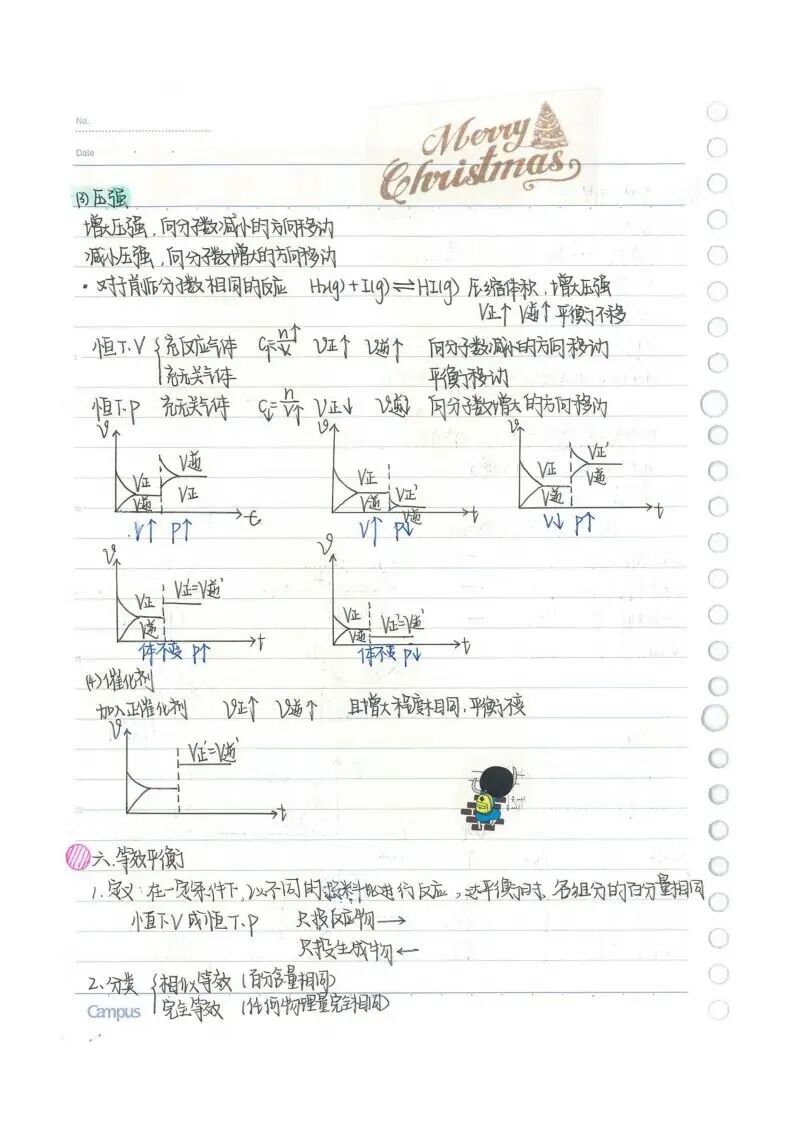 No.
Date
Merry
Christmas
(3)压强
增大压强，向分子数减小的方向移动
减小压强，向分子数增大的方向移动
·对于前后分子数相同的反应 H₂(g)+I(g)⇌HI(g) 压缩体积，增大压强
V正↑ V逆↑ 平衡不移
恒T.V { 充反应气体 C↑=n↑/V V正↑ V逆↑ 向分子数减小的方向移动
充无关气体 平衡移动
恒T.P 充无关气体 C↓=n/V↑ V正↓ V逆↓ 向分子数增大的方向移动
V V正 V逆 V逆 V正 t
V↑ P↑
V V正 V逆 V正' V逆 t
V↑ P↓
V V正 V逆 V正' V逆 t
V↓ P↑
V V正 V逆 V正'=V逆' t
体不变 P↑
V V正 V逆 V正'=V逆' t
体不变 P↓
(4)催化剂
加入正催化剂 V正↑ V逆↑ 且增大程度相同，平衡不变
V V正'=V逆' t
六、等效平衡
1.定义：在一定条件下，以不同的投料比进行反应，达平衡时，各组分的百分量相同
恒T.V或恒T.P 只投反应物→
只投生成物←
2.分类 { 相似等效（百分含量相同）
完全等效（任何物理量完全相同）
Campus